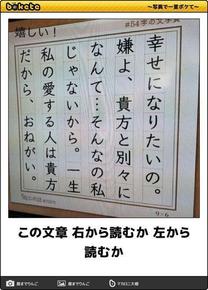 bokete
〜写真で一言ボケて〜
#54字の文学賞
嬉しい！
幸せになりたいの。
嫌よ、貴方と別々に
なんて…そんなの私
じゃないから。一生
私の愛する人は貴方
だから、おねがい。
9-6
この文章 右から読むか 左から
読むか